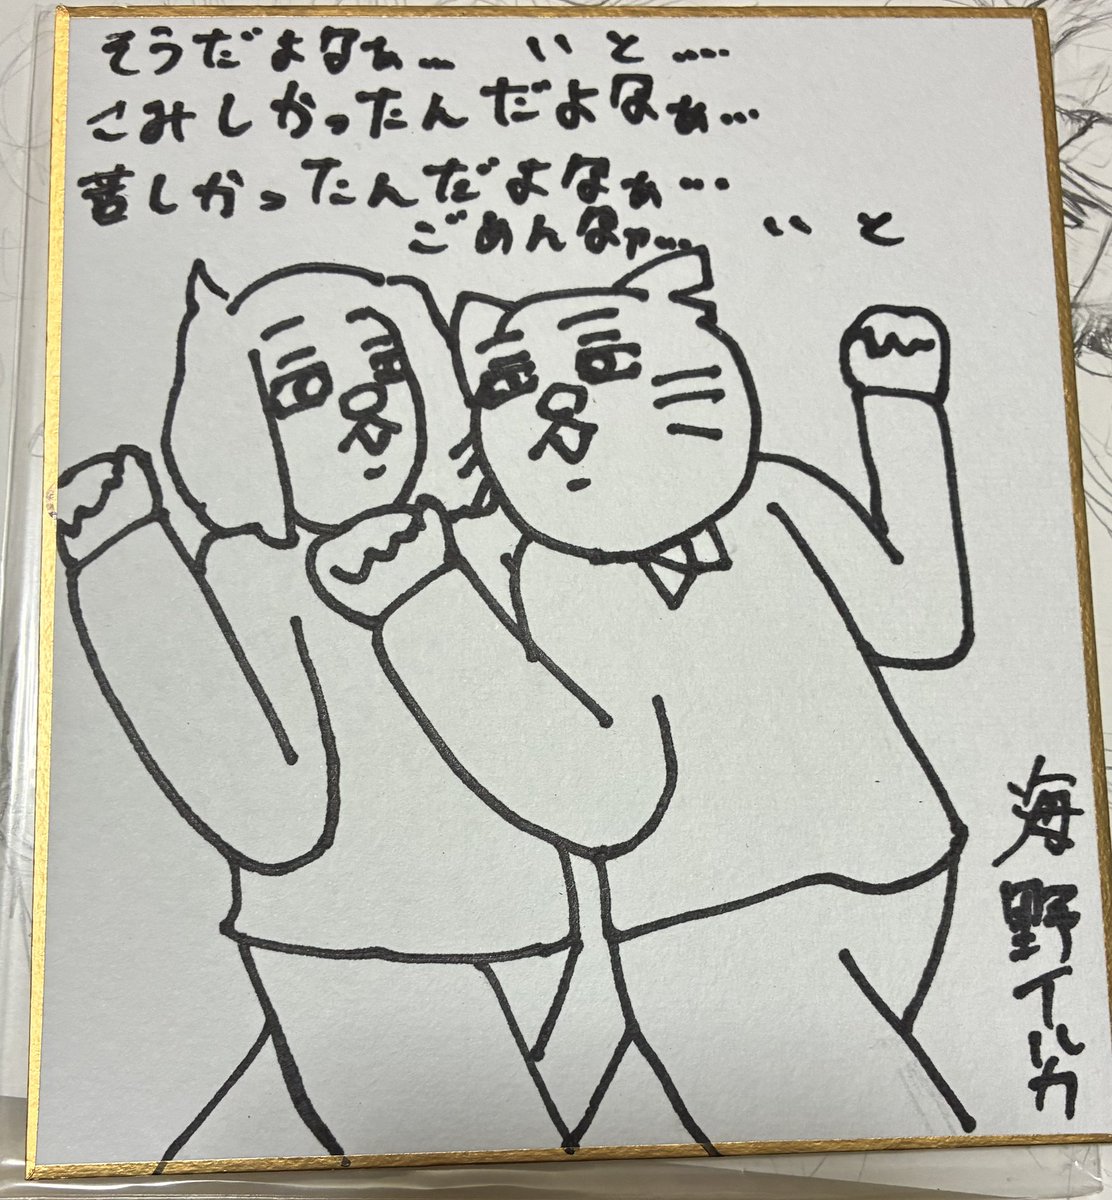 そうだよなぁ… いと…
さみしかったんだよなぁ…
苦しかったんだよなぁ…
ごめんなァ… いと
海野イルカ